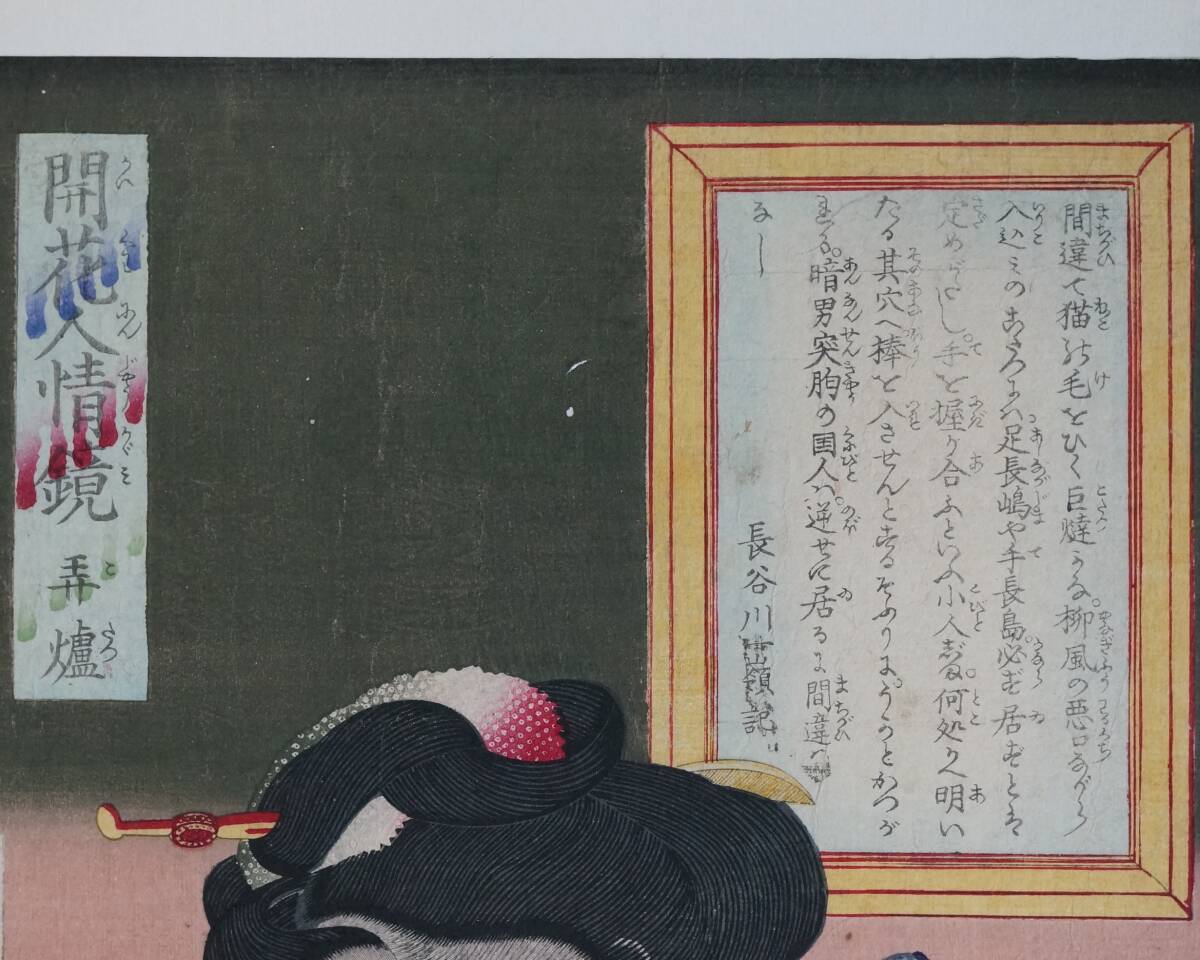 間違て猫の毛をひく巨燵かな。柳風の悪口ながら
入込みのこたつには足長嶋や手長島必ず居ずとは
定めがたし。手を握り合ふといふ小人だね。何処かへ明い
たる其穴へ棒を入させんとするそぶりに。うかとかつが
れる。暗男突胸の国人は。逆せに居るは間違は
なし
長谷川 記
開花人情鏡 弄爐